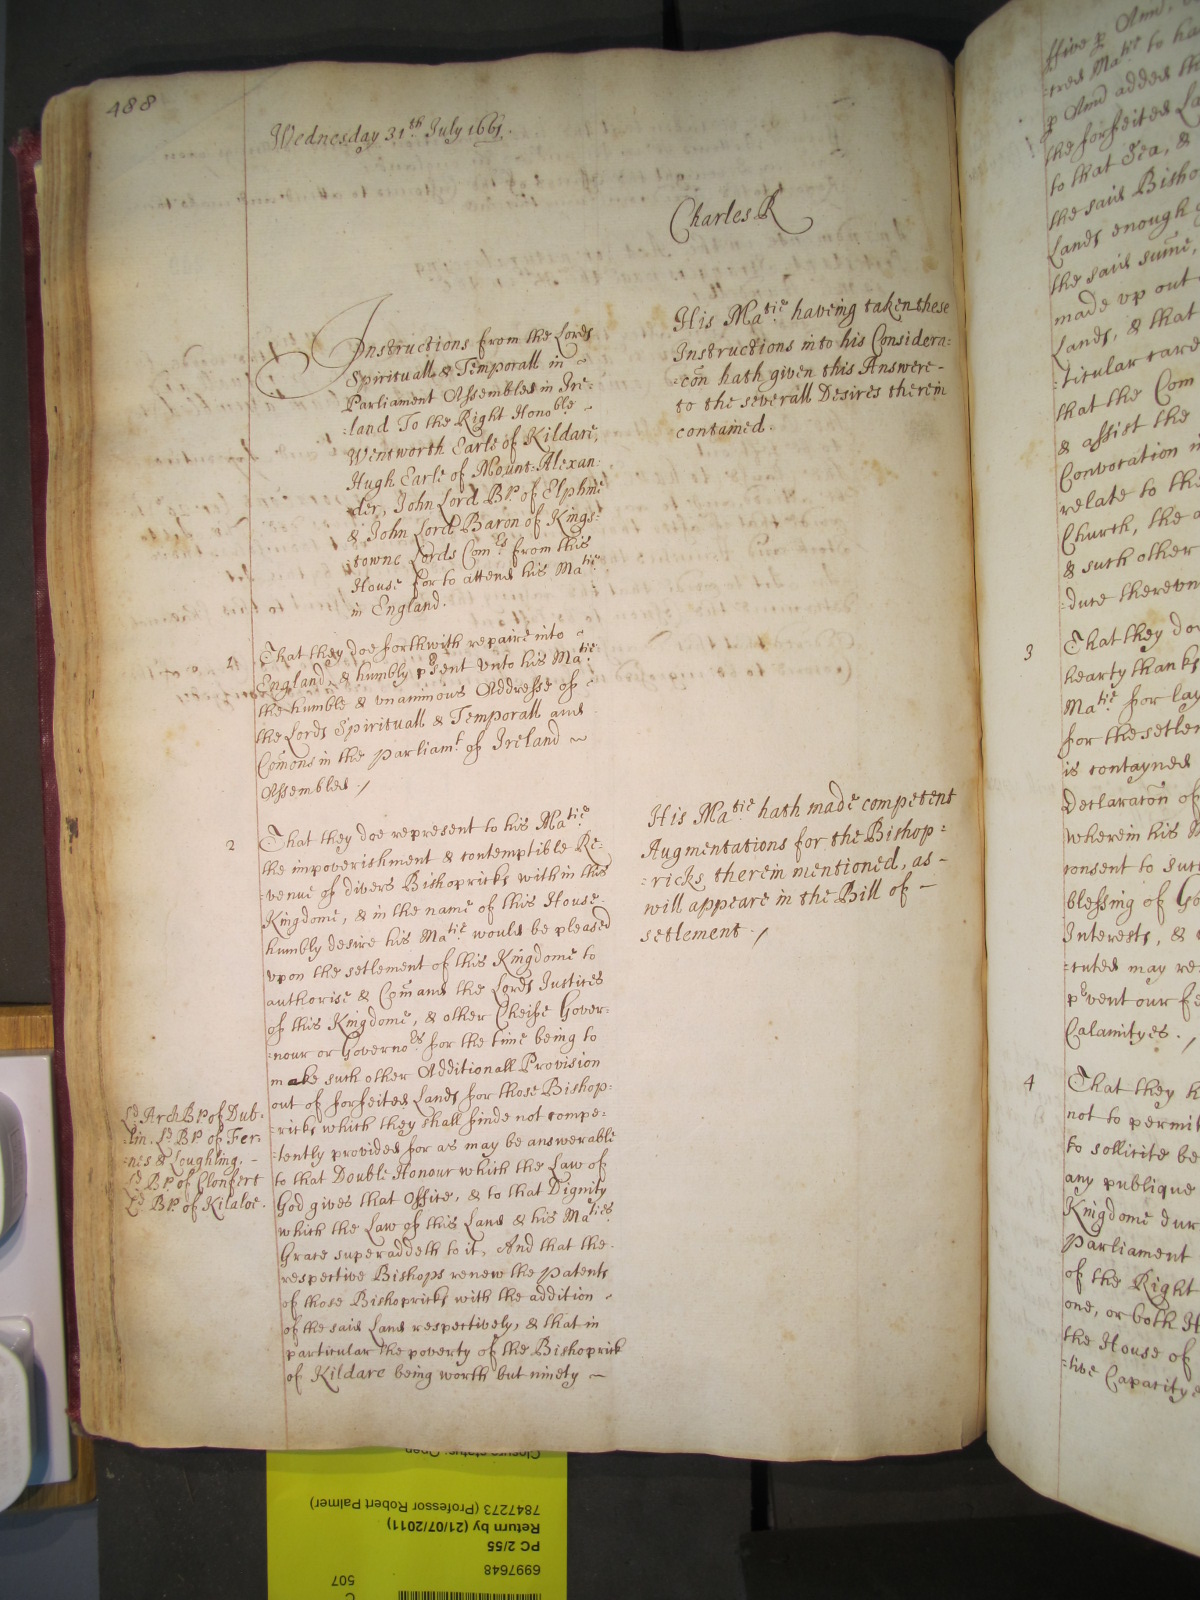 488
Wednesday 31.th July 1661.
Charles R
Instructions from the Lords
Spirituall & Temporall in
Parliament Assembled in Ire:
:land To the Right Hono.ble
Wentworth Earle of Kildare,
Hugh Earle of Mount-Alexan:
der, John Lord Bp. of Elphine
& John Lord Baron of Kings:
:towne Lords Com.rs from this
House for to attend his Ma.tie
in England.
His Ma.tie having taken these
Instructions into his Considera:
:con hath given this Answere -
to the severall Desires therein
contained.
1
That they doe forthwith repaire into
England, & humbly p'sent unto his Ma.tie
the humble & unanimous Addresse of
the Lords Spirituall & Temporall and
Comons in the Parliam.t of Ireland ~
Assembled. /
2
That they doe represent to his Ma.tie
the impoverishment & contemptible Re:
:venue of divers Bishopricks within this
Kingdome, & in the name of this House
humbly desire his Ma.tie would be pleased
upon the setlement of this Kingdome to
authorise & Comand the Lords Justices
of this Kingdome, & other Cheife Gover:
:nour or Governo.rs for the time being to
make such other Additionall Provision
out of forfeited Lands for those Bishop:
:ricks which they shall finde not compe:
:tently provided for as may be answerable
to that Double Honour which the Law of
God gives that Office, & to that Dignity
which the Law of this Land & his Ma.ties
Grace superaddeth to it, And that the
respective Bishops renew the Patents
of those Bishopricks with the addition
of the said Land respectively, & that in
particular the poverty of the Bishoprick
of Kildare being worth but ninety ~
Ld. ArchBp. of Dub:
:lin. Ld. Bp. of Fer:
:nes & Loughling. -
Ld. Bp. of Clonfert
Ld. Bp. of Kilaloe.
His Ma.tie hath made competent
Augmentations for the Bishop:
:ricks therein mentioned, as -
will appeare in the Bill of -
setlement. /
:tred Ma.tie to ha
p Ann added
the forfeited La
to that Sea, &
the said Bisho
Lands enough
the said sume,
made up out
Lands, & that
:ticular care
that the Com
& assist the
Convocation
relate to the
Church, the
& such other
:duce thereun
3
That they doe
hearty thanks
Ma.tie for lay
for the setle
is contayned
Declaracon of
wherein his M
consent to such
blessing of Go
Interests, &
:cuted may re
p'vent our fe
Calamityes. /
4
That they h
not to permit
to sollicite be
any publique
Kingdome dur
Parliament
of the Right
one, or both H
the House of
:tive Capacitye
Closure status: Open
7847273 (Professor Robert Palmer)
Return by (21/07/2011)
PC 2/55
6997648
507
C